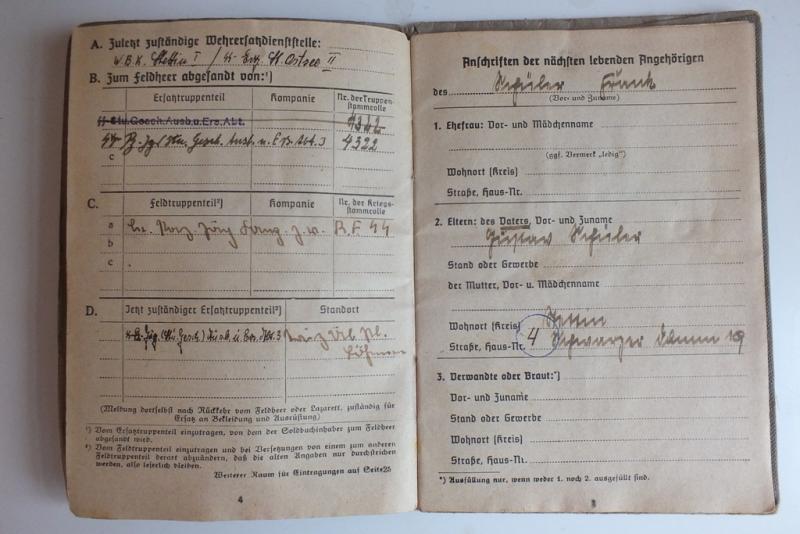 A. Zuletzt zuständige Wehrersatzdienststelle:
W.B.K. Stettin I / St. Ostsee II
B. Zum Feldheer abgesandt von:¹)
Ersatztruppenteil Kompanie Nr. der Truppen-
stammrolle
Stu. Gesch. Ausb. u. Ers. Abt. 4322
Gesch. Ausb. u. Ers. Abt. 3 4322
c
C. Feldtruppenteil²) Kompanie Nr. der Kriegs-
stammrolle
a
b
c
D. Jetzt zuständiger Ersatztruppenteil²) Standort
Ausb. u. Ers. Abt. 3
Böhmen
(Meldung dortselbst nach Rückkehr vom Feldheer oder Lazarett, zuständig für
Ersatz an Bekleidung und Ausrüstung)
¹) Vom Ersatztruppenteil einzutragen, von dem der Soldbuchinhaber zum Feldheer
abgesandt wird.
²) Vom Feldtruppenteil einzutragen und bei Versetzungen von einem zum anderen
Feldtruppenteil derart abzuändern, daß die alten Angaben nur durchstrichen
werden, also leserlich bleiben.
Weiterer Raum für Eintragungen auf Seite 25
4
Anschriften der nächsten lebenden Angehörigen
des Schüler Frank
(Vor- und Zuname)
1. Ehefrau: Vor- und Mädchenname
(ggf. Vermerk „ledig")
Wohnort (Kreis)
Straße, Haus-Nr.
2. Eltern: des Vaters, Vor- und Zuname
Gustav Schüler
Stand oder Gewerbe
der Mutter, Vor- u. Mädchenname
Wohnort (Kreis) Stettin
Straße, Haus-Nr. 4 Schwarzer Damm 19
3. Verwandte oder Braut:*)
Vor- und Zuname
Stand oder Gewerbe
Wohnort (Kreis)
Straße, Haus-Nr.
*) Ausfüllung nur, wenn weder 1. noch 2. ausgefüllt sind.